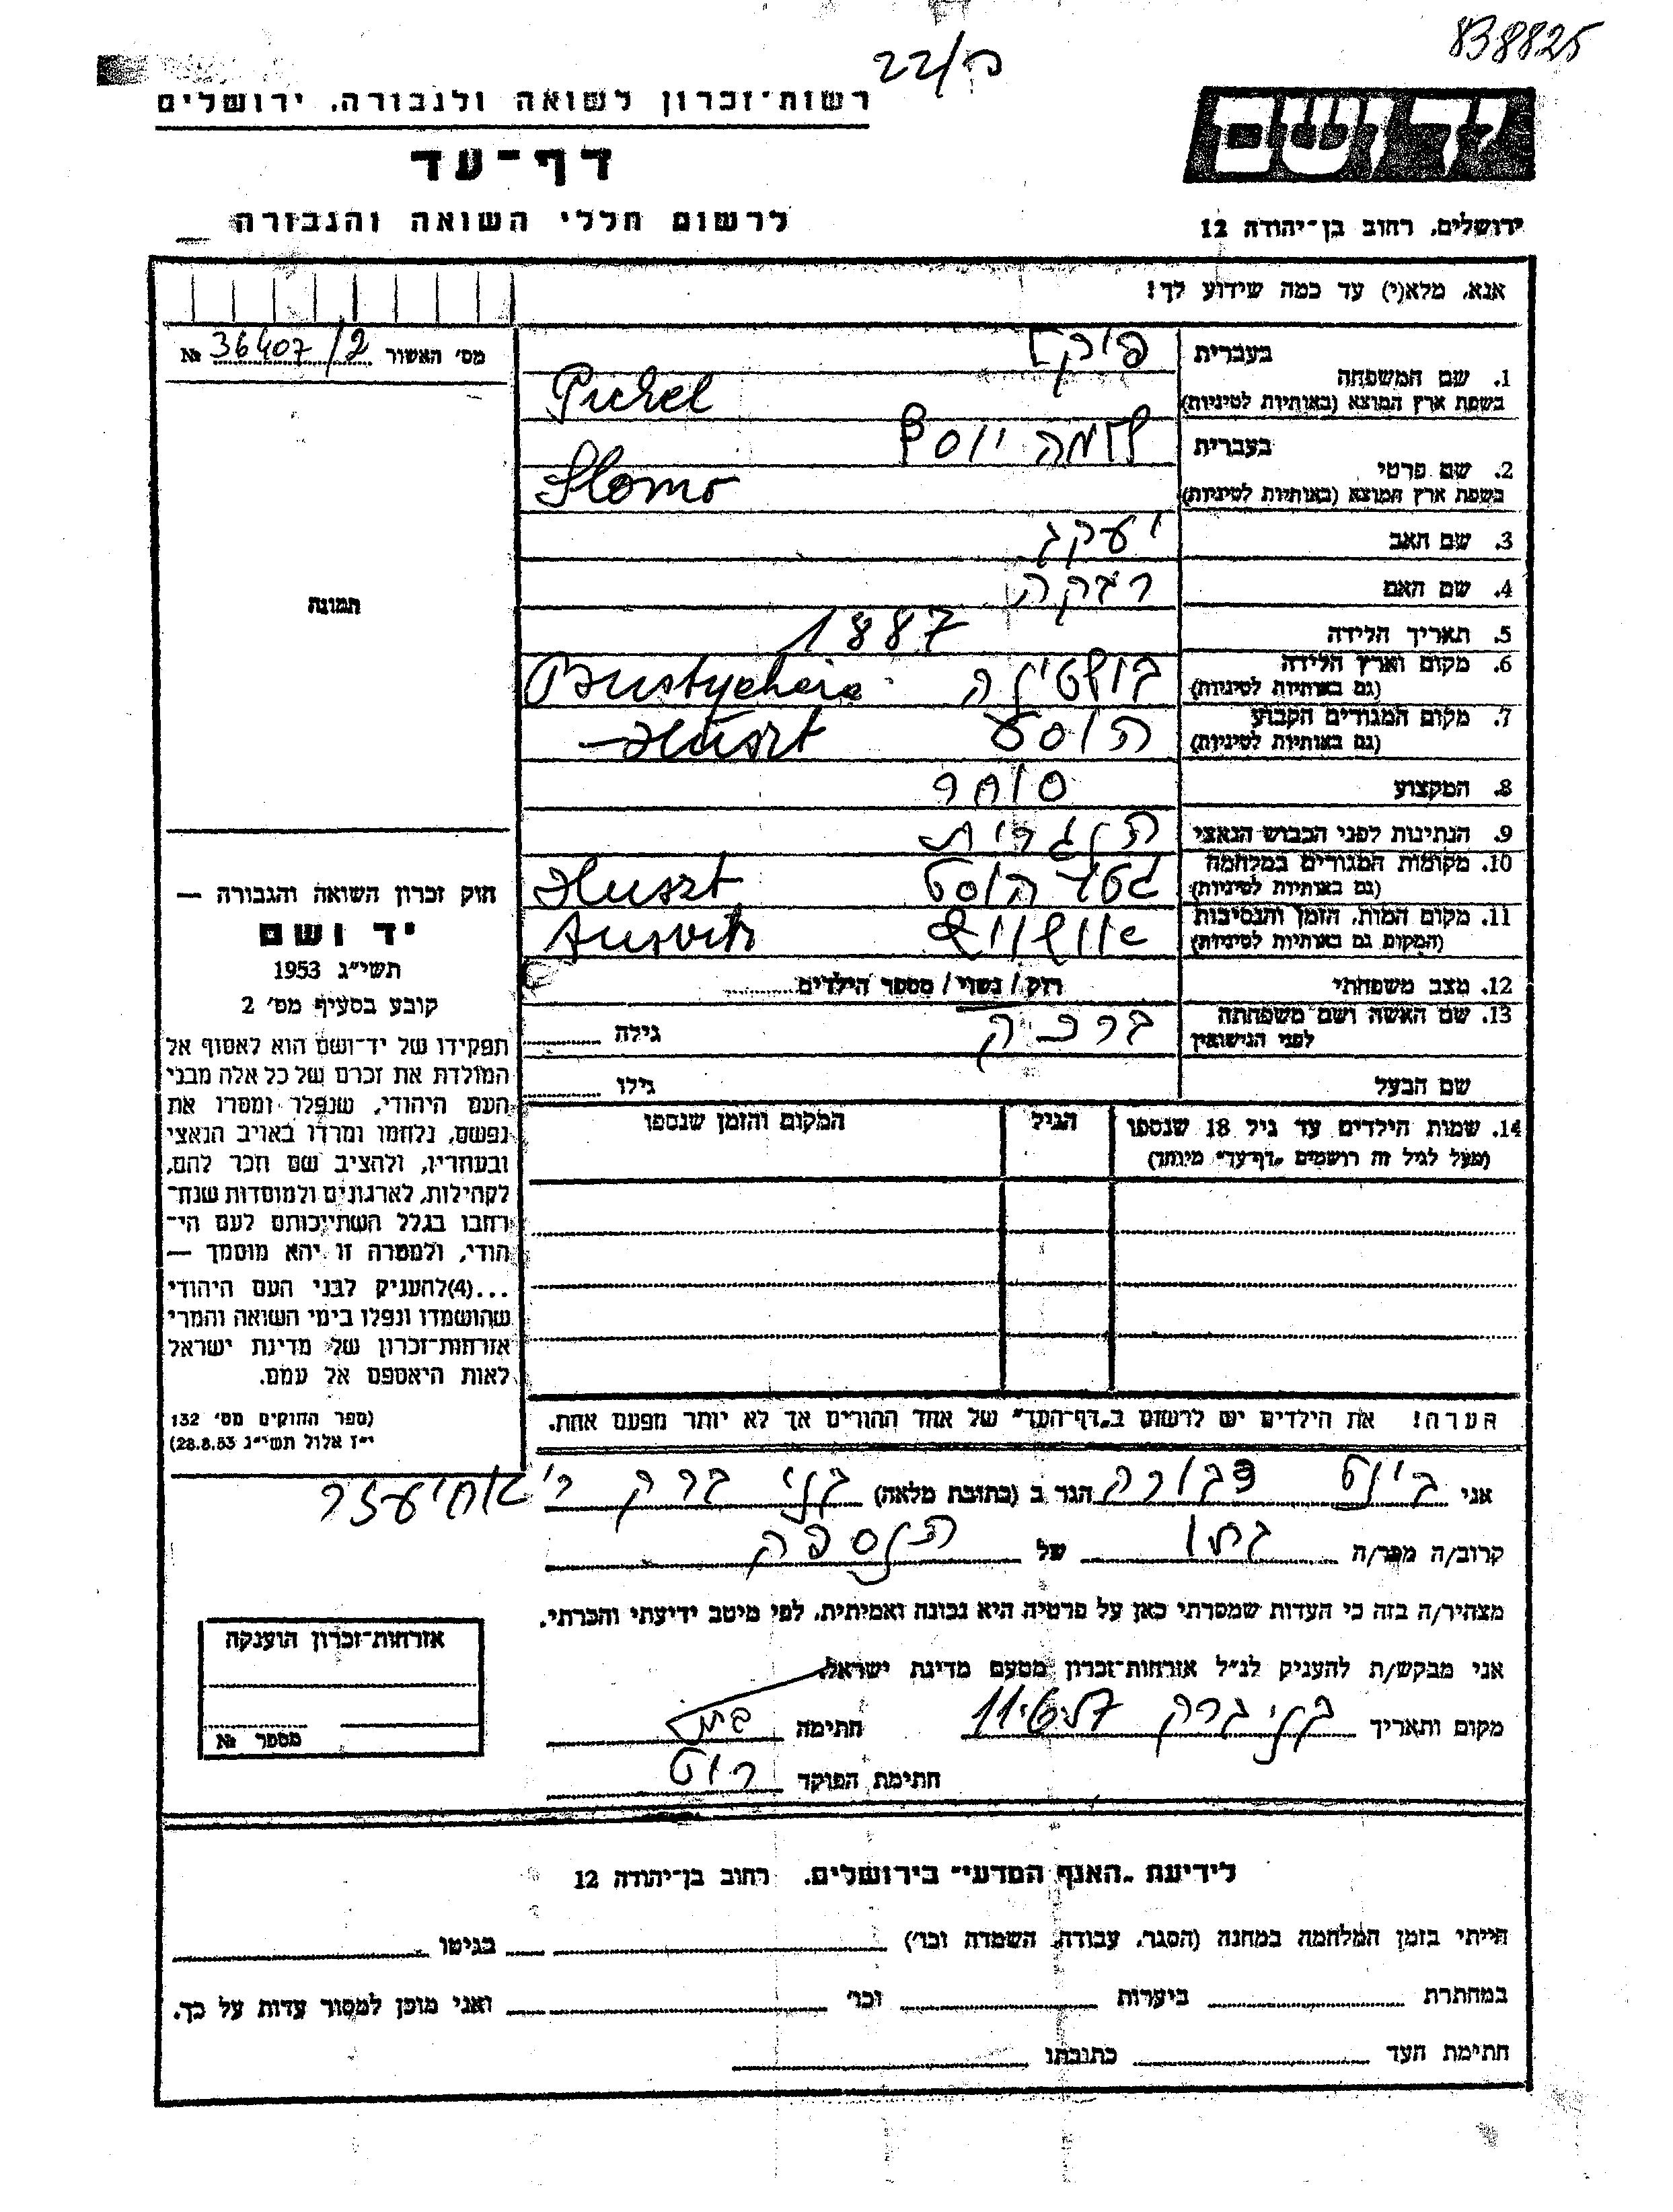 838825
22/ה
יד ושם
רשות־זכרון לשואה ולגבורה, ירושלים
דף־עד
ירושלים, רחוב בן־יהודה 12
לרשום חללי השואה והגבורה
אנא, מלא(י) עד כמה שידוע לך!
מס׳ האשור 36407/2 №
1. שם המשפחה
בעברית
בשפת ארץ המוצא (באותיות לטיניות)
2. שם פרטי
בעברית שלמה יוסף
בשפת ארץ המוצא (באותיות לטיניות) Slomo
3. שם האב יעקב
4. שם האם רבקה
5. תאריך הלידה 1887
6. מקום וארץ הלידה
(גם באותיות לטיניות)
7. מקום המגורים הקבוע
(גם באותיות לטיניות) Huszt
8. המקצוע סוחר
9. הנתינות לפני הכבוש הנאצי הונגרית
10. מקומות המגורים במלחמה
(גם באותיות לטיניות) גטו הוסט Huszt
11. מקום המות, הזמן והנסיבות
(המקום גם באותיות לטיניות) אושוויץ Ausvitz
12. מצב משפחתי רוק / נשוי / מספר הילדים
13. שם האשה ושם משפחתה
לפני הנישואין ברכה גילה
שם הבעל גילו
14. שמות הילדים עד גיל 18 שנספו
(מעל לגיל זה רושמים „דף־עד״ מיוחד)
הגיל
המקום והזמן שנספו
תמונה
חוק זכרון השואה והגבורה —
יד ושם
תשי״ג 1953
קובע בסעיף מס׳ 2
תפקידו של יד־ושם הוא לאסוף אל
המולדת את זכרם של כל אלה מבני
העם היהודי, שנפלו ומסרו את
נפשם, נלחמו ומרדו באויב הנאצי
ובעוזריו, ולהציב שם וזכר להם,
לקהילות, לארגונים ולמוסדות שנח־
רבו בגלל השתייכותם לעם הי־
הודי, ולמטרה זו יהא מוסמך —
...(4) להעניק לבני העם היהודי
שהושמדו ונפלו בימי השואה והמרי
אזרחות־זכרון של מדינת ישראל
לאות היאספם אל עמם.
(ספר החוקים מס׳ 132
י״ז אלול תשי״ג 28.8.53)
הערה! את הילדים יש לרשום ב„דף־העד״ של אחד ההורים אך לא יותר מפעם אחת.
אני דבורה הגר ב (כתובת מלאה) בני ברק ר׳ אחיעזר
קרוב/ה מכר/ה של הנספה
מצהיר/ה בזה כי העדות שמסרתי כאן על פרטיה היא נכונה ואמיתית, לפי מיטב ידיעתי והכרתי.
אני מבקש/ת להעניק לנ״ל אזרחות־זכרון מטעם מדינת ישראל.
מקום ותאריך בני ברק חתימה
חתימת הפוקד
אזרחות־זכרון הוענקה
מספר №
לידיעת „האגף המדעי״ בירושלים, רחוב בן־יהודה 12
הייתי בזמן המלחמה במחנה (הסגר, עבודה, השמדה וכו׳) בגיטו
במחתרת ביערות וכו׳ ואני מוכן למסור עדות על כך.
חתימת העד כתובתו